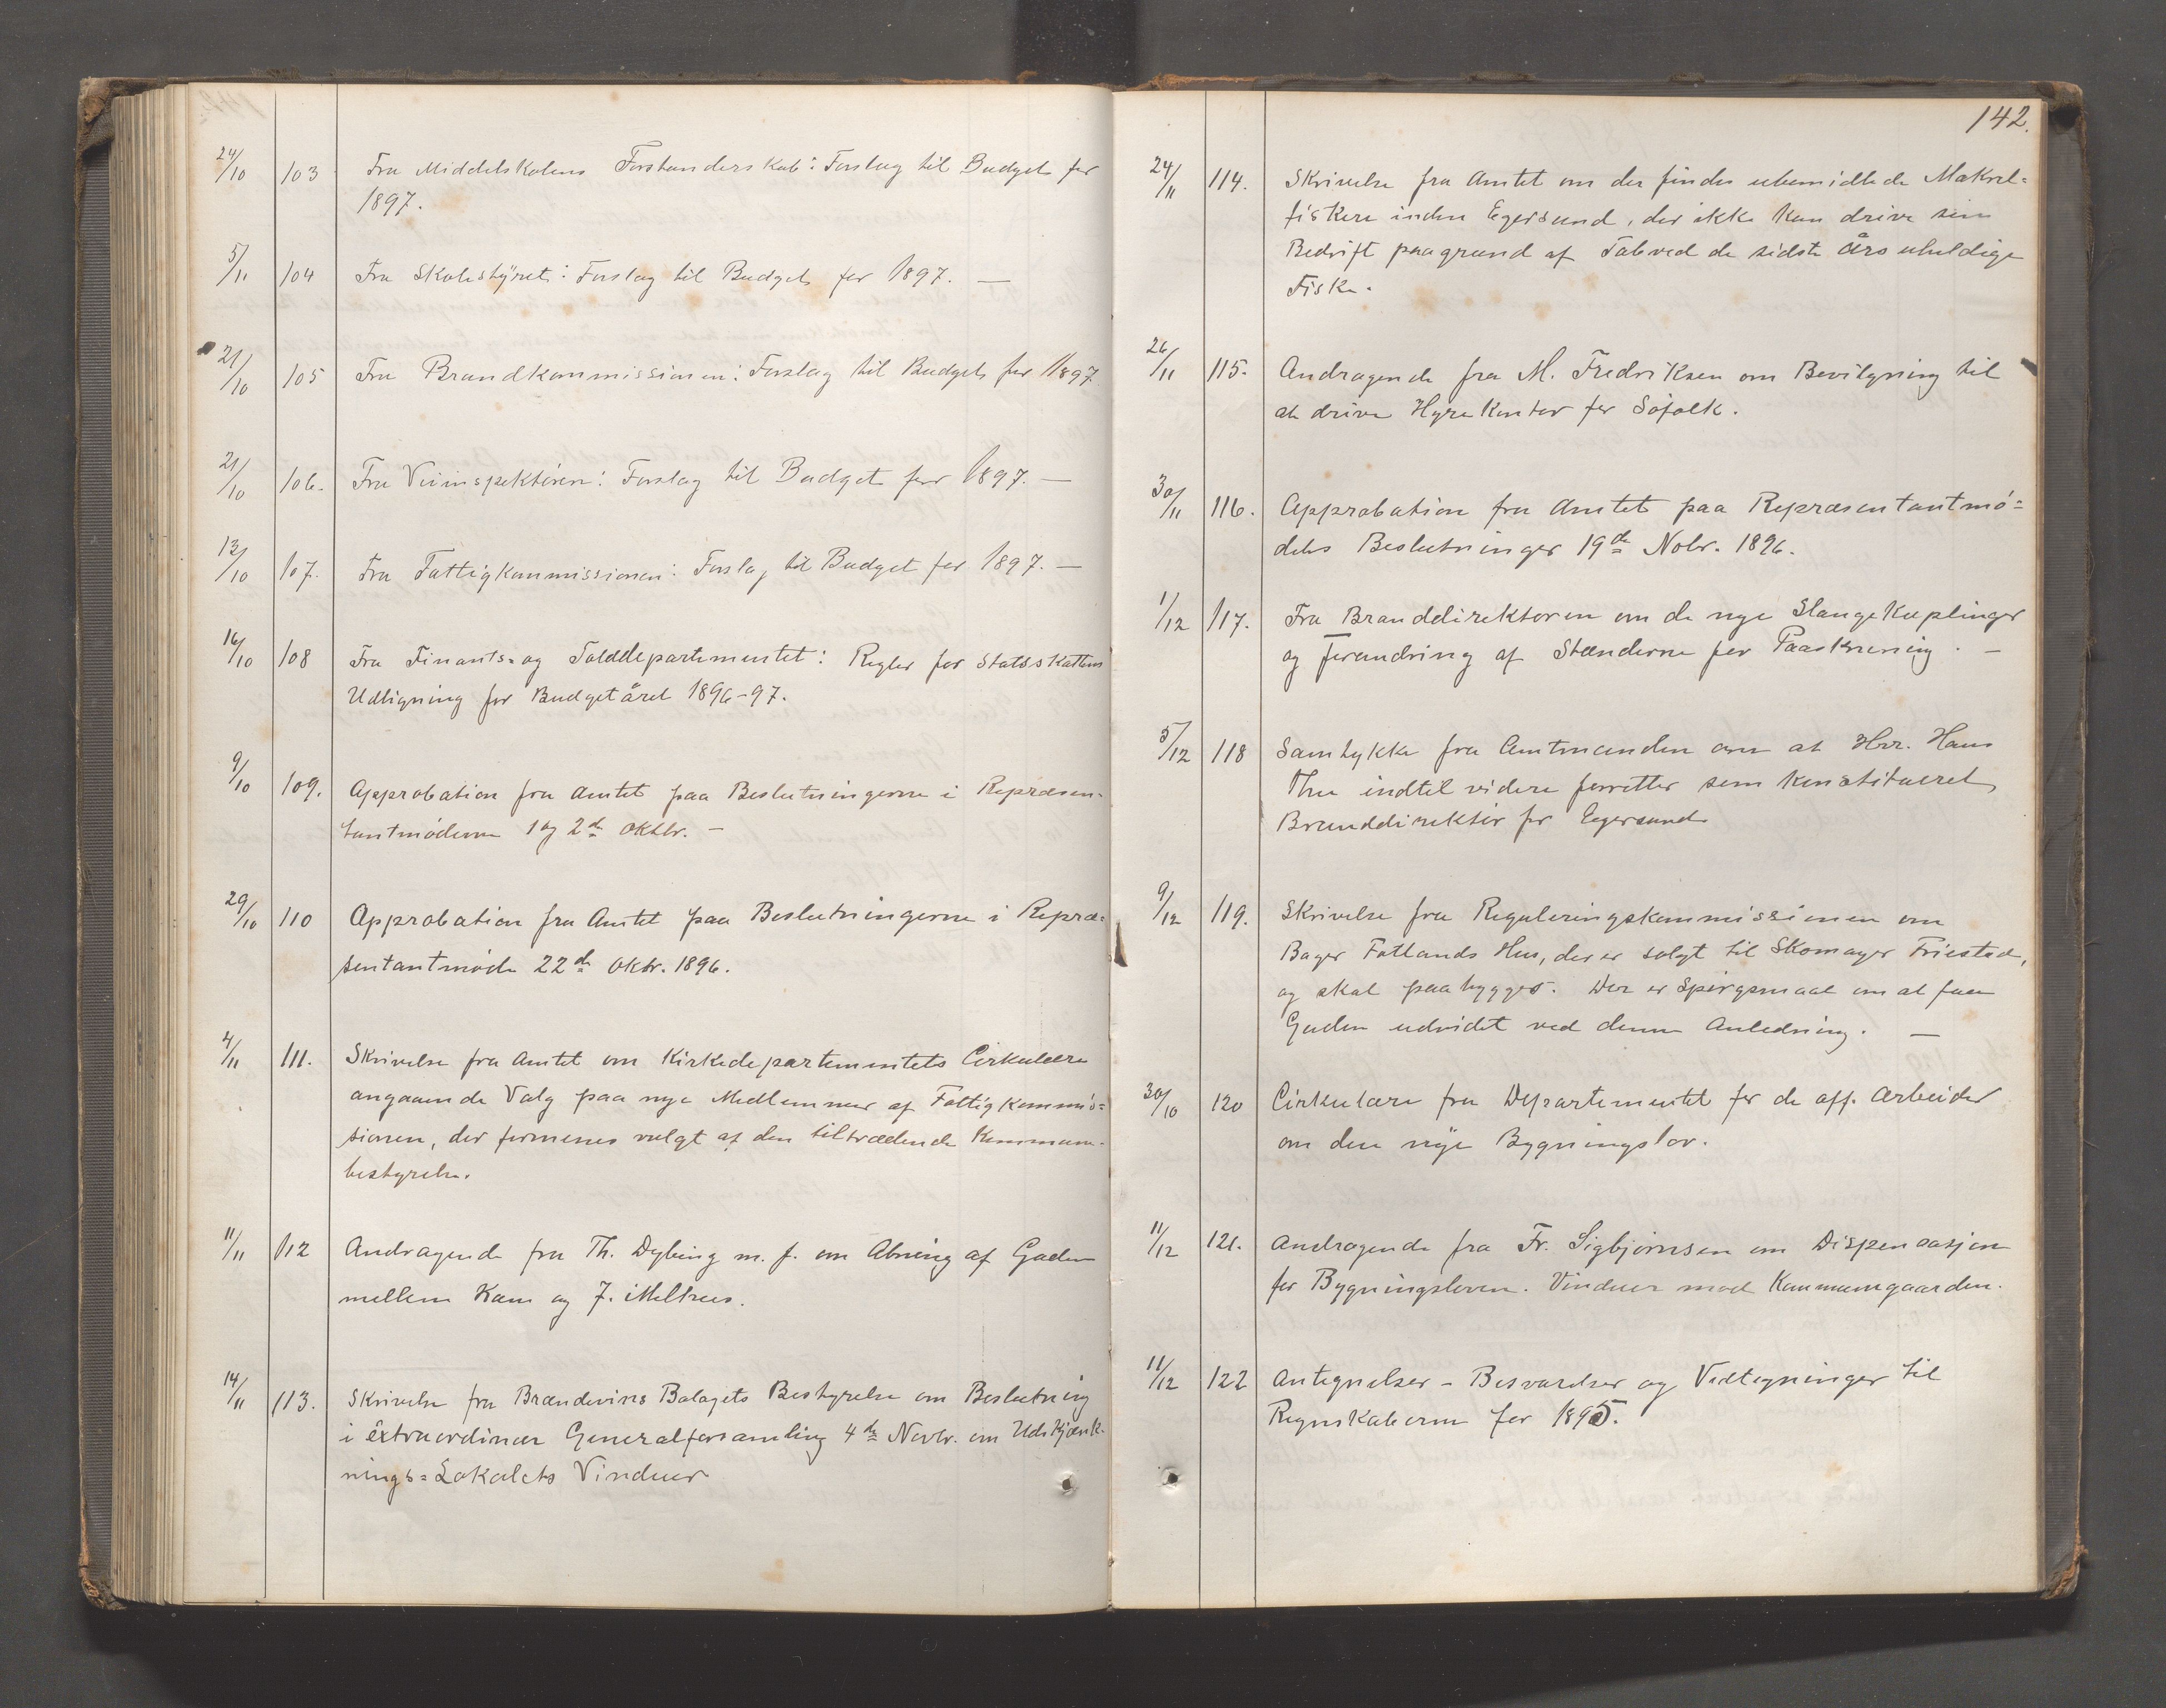 24/10 103 Fra Middelskolens Forstanderskab: Forslag til Budget for
1897.
5/11 104 Fra Skolestyret: Forslag til Budget for 1897. —
21/10 105 Fra Brandkommissionen: Forslag til Budget for 1897
21/10 106. Fra Veiinspektören: Forslag til Budget for 1897. —
13/10 107. Fra Fattigkommissionen: Forslag til Budget for 1897. —
16/10 108 Fra Finants= og Tolddepartementet: Regler for Statsskattens
Udligning for Budgetåret 1896-97.
9/10 109. Approbation fra Amtet paa Beslutningerne i Repræsen-
tantmöderne 1 og 2de Oktbr. —
29/10 110 Approbation fra Amtet paa Beslutningerne i Repræ=
sentantmöde 22de Oktr. 1896.
4/11 111. Skrivelse fra Amtet om Kirkedepartementets Cirkulære
angaaende Valg paa nye Medlemmer af Fattigkommis=
sionen, der formenes valgt af den tiltrædende Kommune-
bestyrelse.
11/11 112 Andragende fra Th. Dybing m. f. om Åbning af Gaden
mellem Kam og J.
14/11 113. Skrivelse fra Brændevins Bolagets Bestyrelse om Beslutning
i extraordinær Generalforsamling 4de Novbr. om Udskjænk-
nings=Lokalets Vinduer
142.
24/11 114. Skrivelse fra Amtet om der findes ubemidlede Makrel=
fiskere inden Egersund, der ikke kan drive sin
Bedrift paagrund af Tab ved de sidste Års uheldige
Fiske.
26/11 115. Andragende fra M. Fredriksen om Bevilgning til
at drive Hyrekontor for Söfolk.
30/11 116. Approbation fra Amtet paa Repræsentantmö=
dets Beslutninger 19de Nobr. 1896.
1/12 117. Fra Branddirektoren om de nye Slangekuplinger
og forandring af Stænderne for Paaskruening. —
5/12 118 Samtykke fra Amtmanden om at Hrr. Hans
Thu indtil videre forretter som konstitueret
Branddirektör for Egersund
9/12 119. Skrivelse fra Reguleringskommissionen om
Bager Fotlands Hus, der er solgt til Skomager Friestad,
og skal paabygges. Der er Spörgsmaal om at faa
Gaden udvidet ved denne Anledning. —
30/10 120 Cirkulære fra Departementet for de off. Arbeider
om den nye Bygningslov.
11/12 121. Andragende fra Fr. Sigbjörnsen om Dispensasjon
for Bygningsloven. Vinduer mod Kommunegaarden.
11/12 122 Antegnelser - Besvarelser og Vedtegninger til
Regnskaberne for 1895.